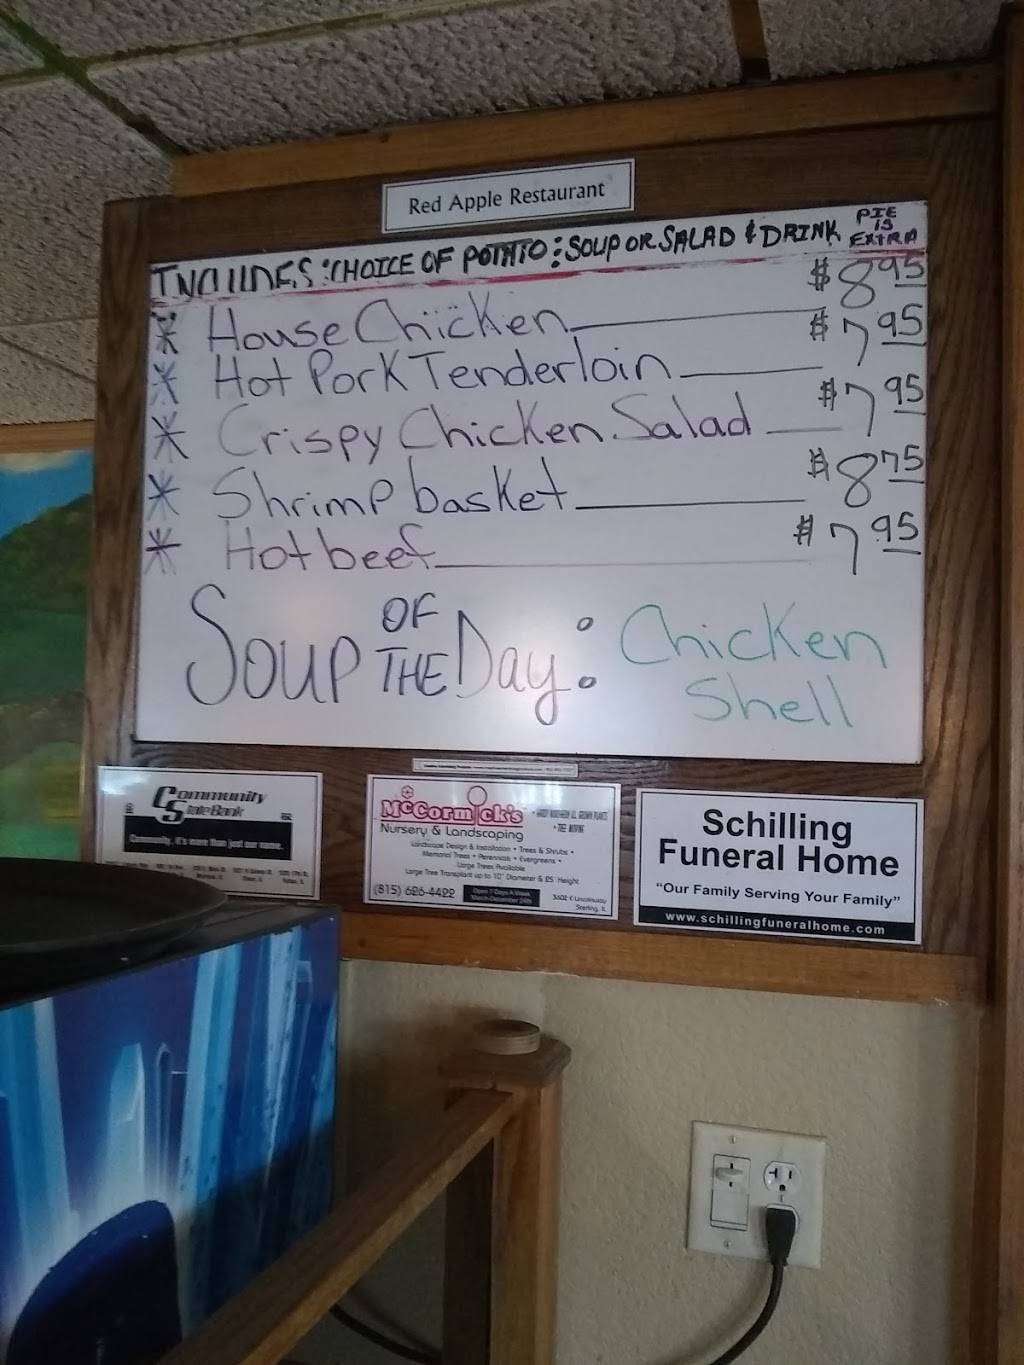 Red Apple Restaurant
INCLUDES: CHOICE OF POTATO: SOUP OR SALAD & DRINK PIE IS EXTRA
* House Chicken $8.95
* Hot Pork Tenderloin $7.95
* Crispy Chicken Salad $7.95
* Shrimp basket $8.75
* Hot beef $7.95
SOUP OF THE Day: Chicken
Shell
Community
State Bank
Community, it's more than just our name.
McCormick's
Nursery & Landscaping
Landscape Design & Installation • Trees & Shrubs •
Memorial Trees • Perennials • Evergreens •
Large Trees Available
Large Tree Transplant up to 10" Diameter & 25' Height
• TREE MOVING
(815) 626-4422
Open 7 Days A Week
March-December 24th
3602 E Lincolnway
Sterling, IL
Schilling
Funeral Home
"Our Family Serving Your Family"
www.schillingfuneralhome.com